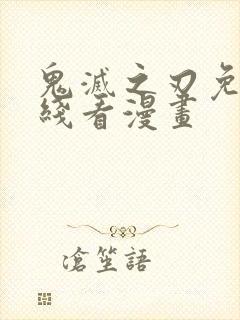 鬼滅之刃免
綫看漫畫
滄笙語